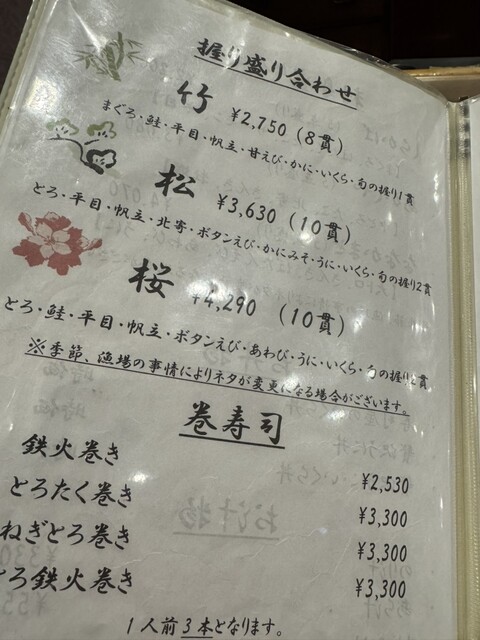 握り盛り合わせ
竹 ¥2,750 (8貫)
まぐろ・鮭・平目・帆立・甘えび・かに・いくら・旬の握り1貫
松 ¥3,630 (10貫)
とろ・平目・帆立・北寄・ボタンえび・かにみそ・うに・いくら・旬の握り2貫
桜 ¥4,290 (10貫)
とろ・鮭・平目・帆立・ボタンえび・あわび・うに・いくら・旬の握り2貫
※季節、漁場の事情によりネタが変更になる場合がございます。
巻寿司
鉄火巻き ¥2,530
とろたく巻き ¥3,300
ねぎとろ巻き ¥3,300
とろ鉄火巻き ¥3,300
1人前3本となります。